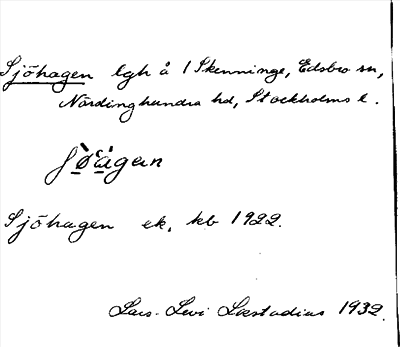 Sjöhagen lgh å 1 Skenninge, Edsbro sn,
Närdinghundra hd, Stockholms l.
Sjöhagen ek, kb 1922.
Lars-Levi Læstadius 1932.